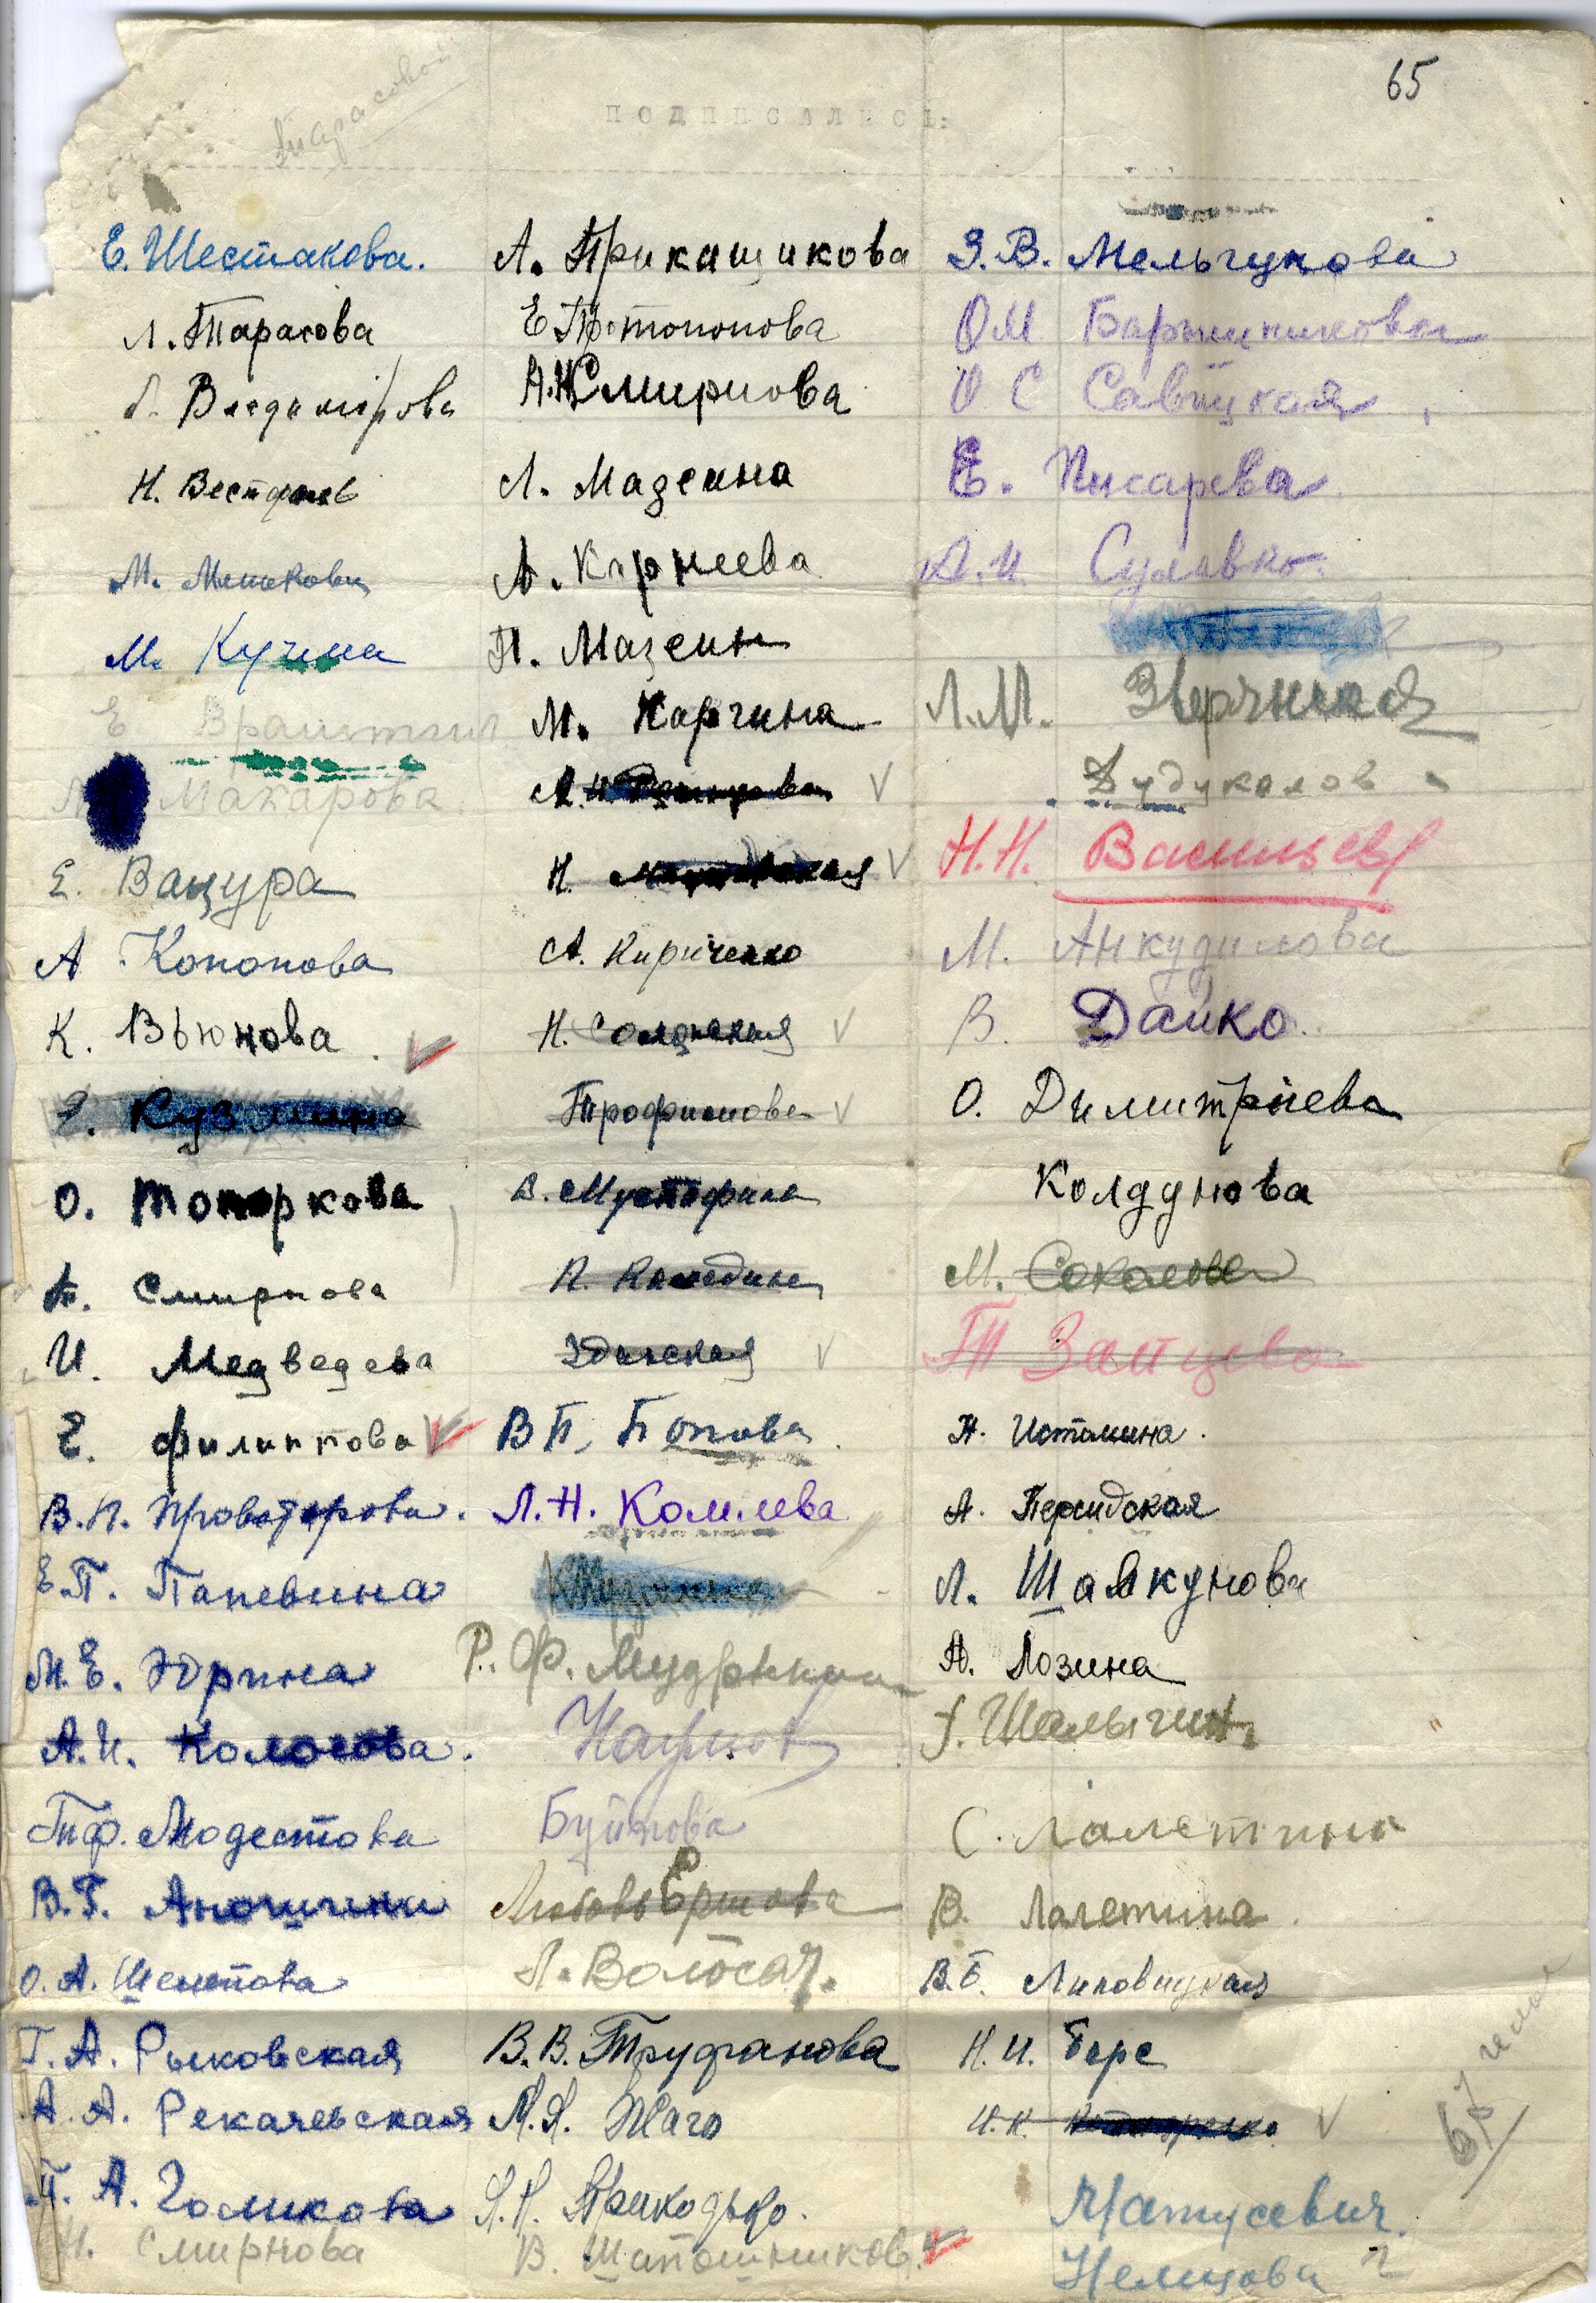 65
Тарасовой
ПОДПИСАЛИСЬ:
Е. Шестакова.
Л. Тарасова
Владимирова
Н. Вестфаль
М. Мешкова
М. Кучма
Е
Макарова
Е. Вацура
А. Кононова
К. Вьюнова
Кузмина
О. Топоркова
А. Смирнова
И. Медведева
Е. Филиппова
В.П. Проваторова.
Е.П. Папевина
М.Е. Юрина
А.И. Колосова.
Т.Ф. Модестова
В.Г.
О.А. Шемтова
Т.А. Рыковская
А.А. Рекачевская
Т.А. Голикова
Н. Смирнова
А. Прикащикова
Е Протопопова
А.Н. Смирнова
Л. Мазеина
А. Корнеева
П. Мазеин
М. Карчина
А.И.
Н.
А. Кириченко
Н. Солянская
Трофимова
В. Мустафина
П. Камедина
Эдинская
В П. Попова
Л.Н. Комлева
Р.Ф. Мудрынин
Наумов
Буйнова
Любовь Ершова
Л. Волосач.
В.В. Труфанова
М.Я. Жаго
Я.П. Приходько.
В. Шапошников.
З.В. Мельгунова
О М Барышникова
О С Савицкая
Е. Писарева
А.И. Сулавко.
Л.М.
Дудукалов
Н.Н. Васильев
М. Анкудинова
В. Данко.
О. Димитриева
Колдунова
М. Соколова
Т Зайцева
Н. Истомина.
А. Персидская
Л. Шавкунова
А. Лозина
Шалыгин.
С. Лалетина
В. Лалетина
В.Б. Липовицкая
Н.И. Берс
И.К.
Матусевич.
Немцова
67